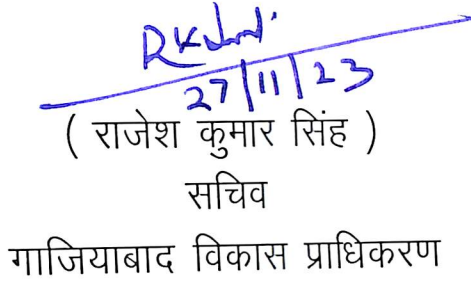 27/11/23
( राजेश कुमार सिंह )
सचिव
गाजियाबाद विकास प्राधिकरण